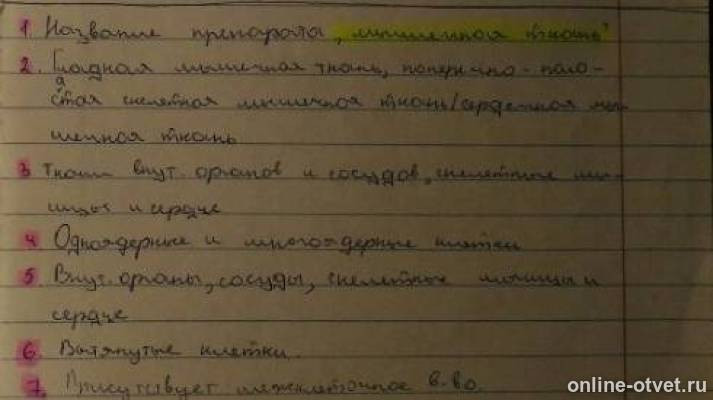 1. Название препарата „мышечная ткань"
2. Гладкая мышечная ткань, поперечно-поло-
стая скелетная мышечная ткань/сердечная мы-
шечная ткань
3 Ткани внут. органов и сосудов, скелетные мы-
шцы и сердце
4 Одноядерные и многоядерные клетки
5 Внут. органы, сосуды, скелетные мышцы и
сердце
6. Вытянутые клетки.
7. Присутствует межклеточное в-во.
online-otvet.ru